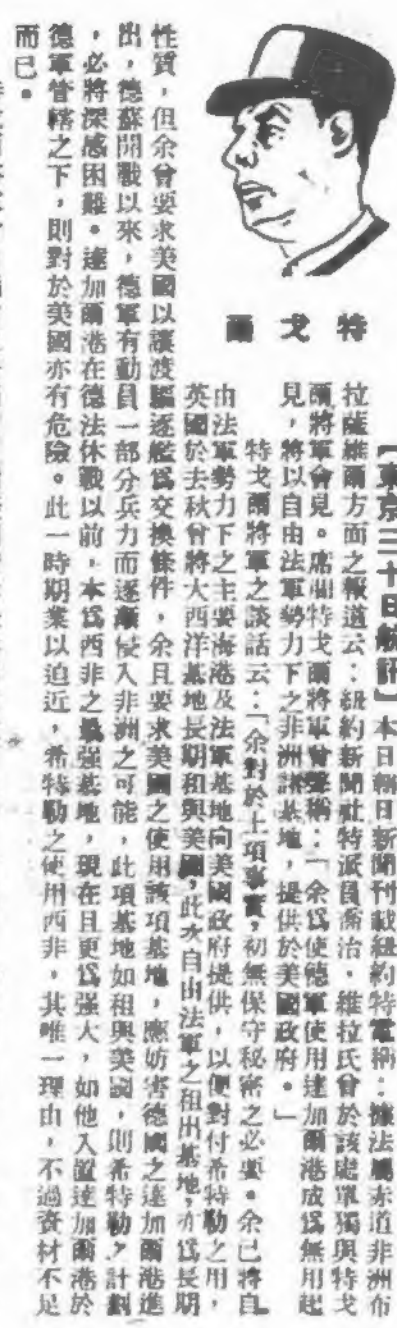 特戈爾
【東京三十日航訊】本日朝日新聞刊載紐約特電稱：據法屬赤道非洲布
拉薩維爾方面之報道云：紐約新聞社特派員喬治・維拉氏曾於該處單獨與特戈
爾將軍會見。席間特戈爾將軍曾聲稱：「余爲使德軍使用達加爾港成爲無用起
見，將以自由法軍勢力下之非洲諸基地，提供於美國政府。」
特戈爾將軍之談話云：「余對於上項事實，初無保守秘密之必要。余已將自
由法軍勢力下之主要海港及法軍基地向美國政府提供，以便對付希特勒之用，
英國於去秋曾將大西洋基地長期租與美國，此次自由法軍之租出基地，亦爲長期
性質，但余曾要求美國以讓渡驅逐艦爲交換條件，余且要求美國之使用該項基地，應妨害德國之達加爾港進
出，德蘇開戰以來，德軍有動員一部分兵力而逐漸侵入非洲之可能，此項基地如租與美國，則希特勒之計劃
，必將深感困難。達加爾港在德法休戰以前，本爲西非之最强基地，現在且更爲强大，如他入置達加爾港於
德軍管轄之下，則對於美國亦有危險。此一時期業以迫近，希特勒之使用西非，其唯一理由，不過資材不足
而已。